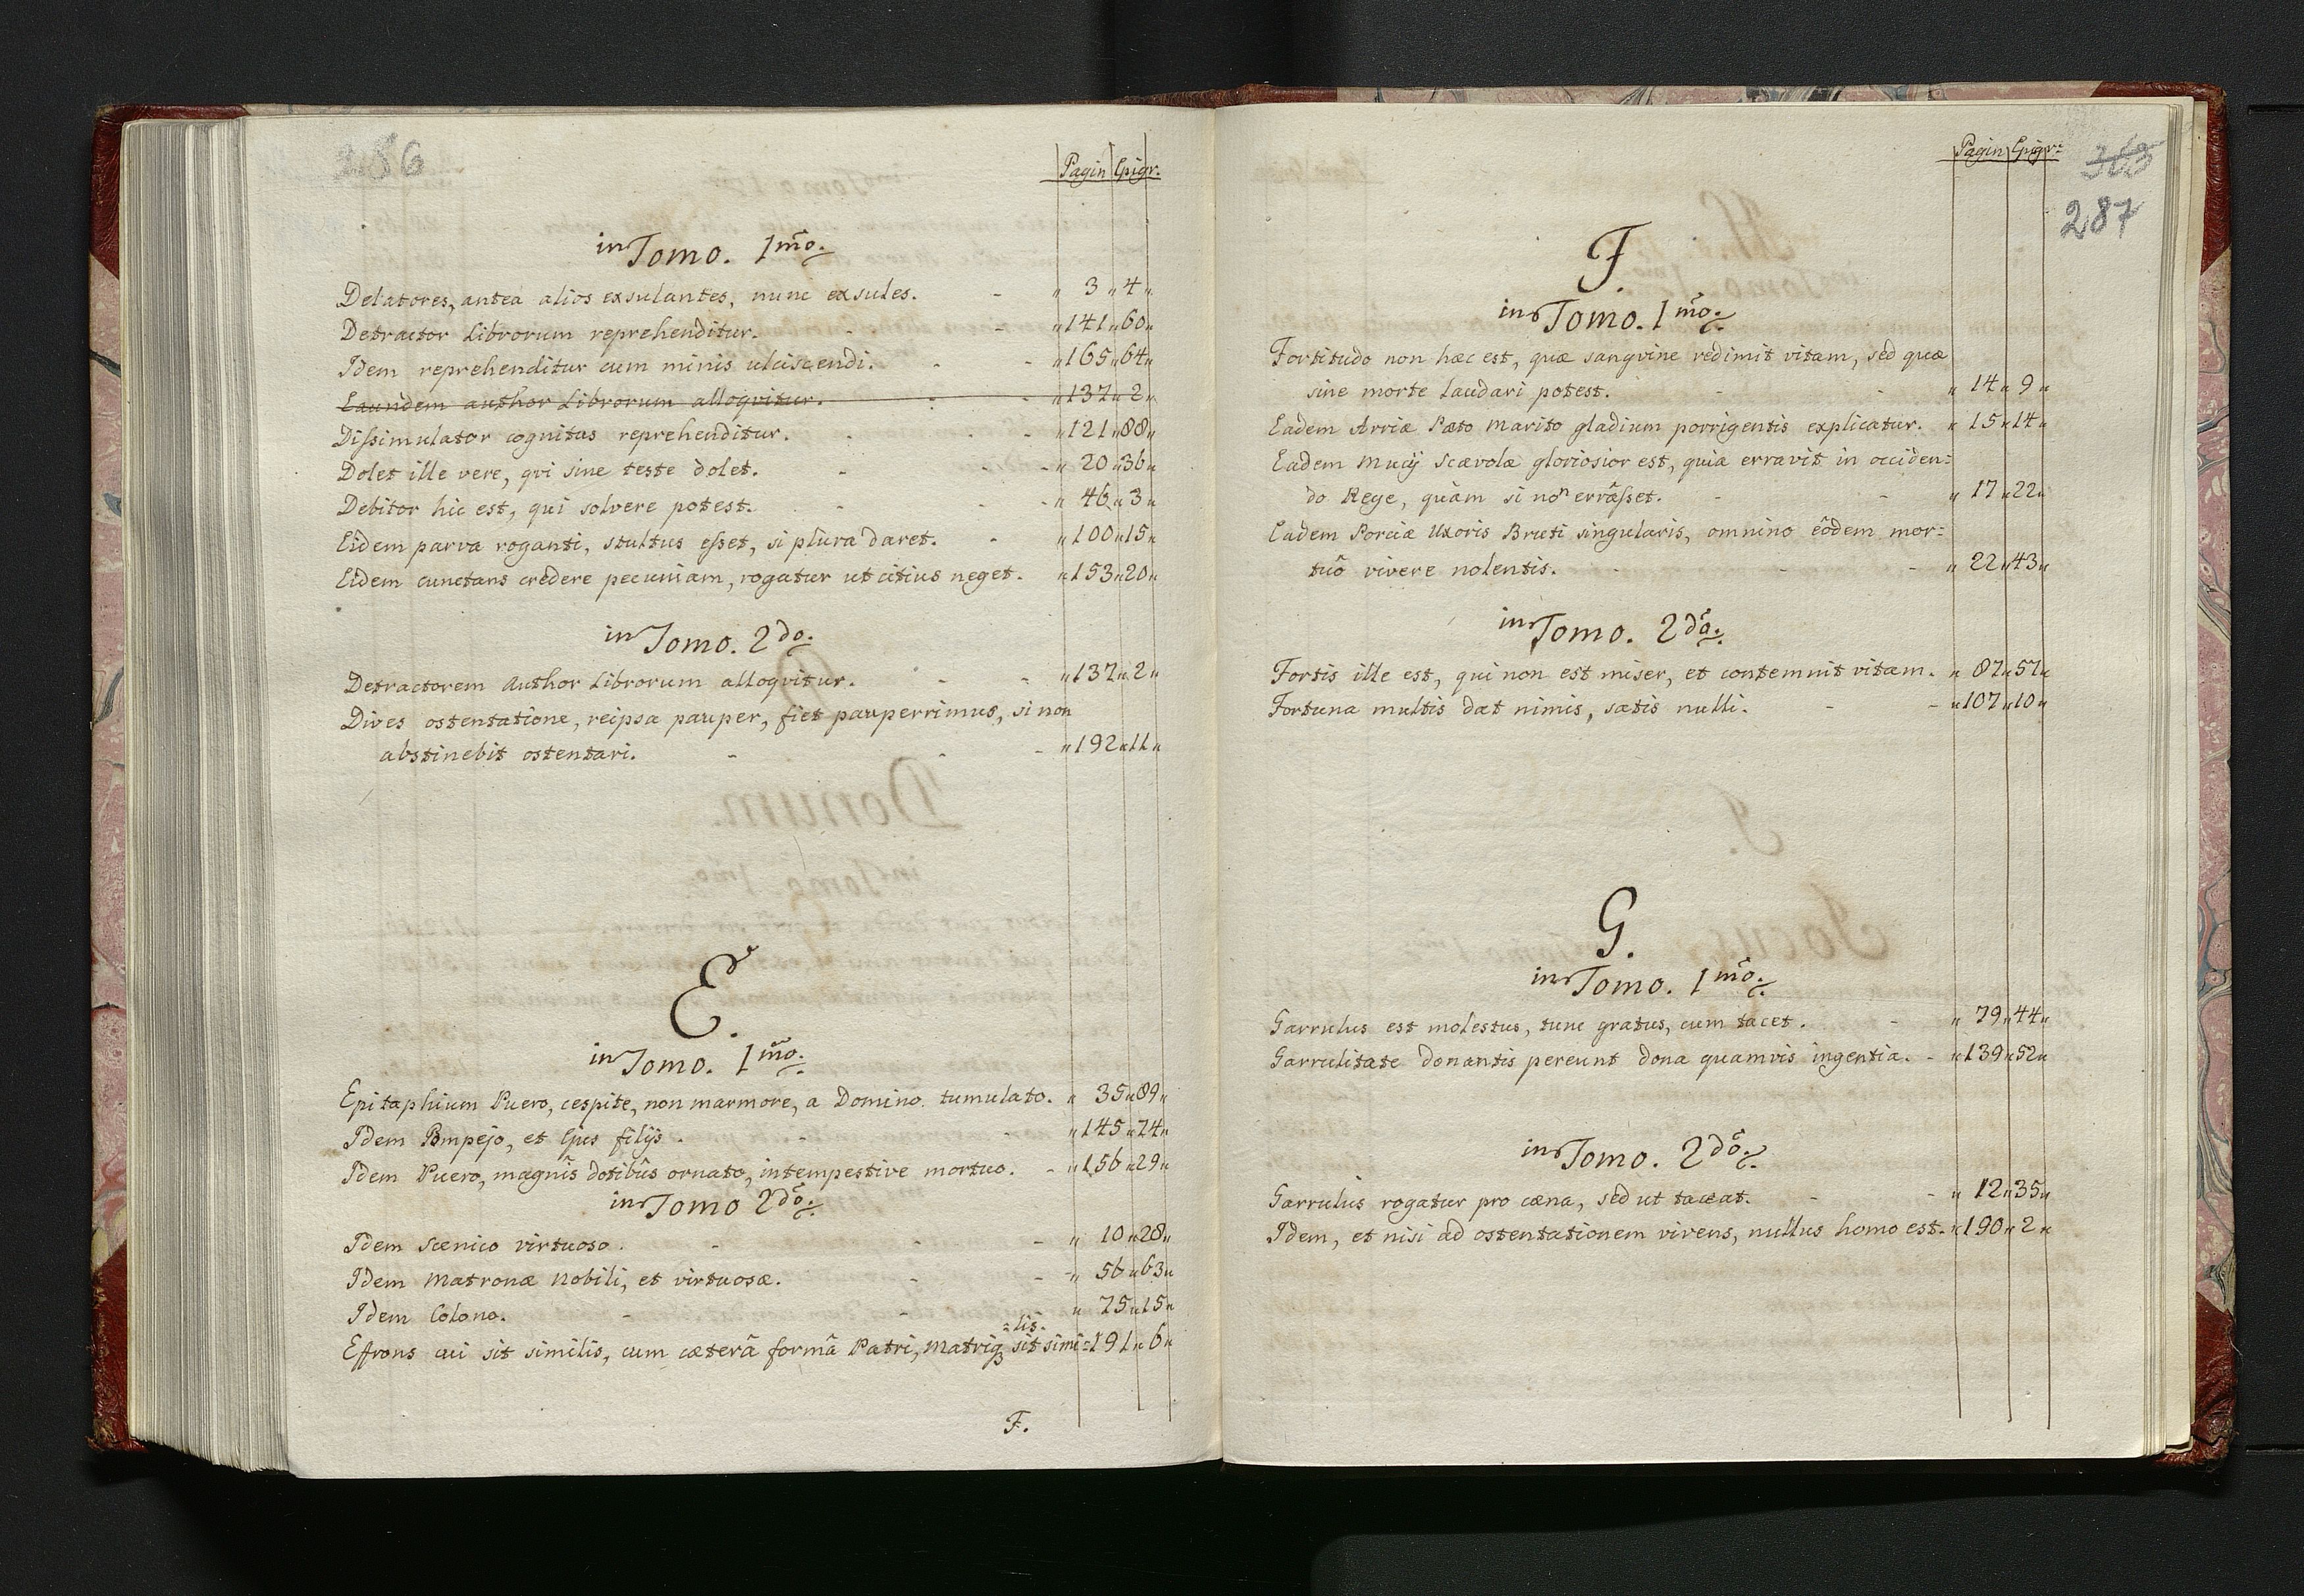 286
Pagin Epigr.
in Tomo. 1mo.
Delatores, antea alios exsulantes, nunc exsules. - „ 3 „ 4 „
Detractor Librorum reprehenditur. - - „ 141 „ 60 „
Idem reprehenditur cum minis ulciscendi. - - „ 165 „ 64 „
Eaundem author Librorum alloqvitur. - - „ 137 „ 2 „
Dissimulator cognitus reprehenditur. - - - „ 121 „ 88 „
Dolet ille vere, qvi sine teste dolet. - - - „ 20 „ 36 „
Debitor hic est, qui solvere potest. - - - „ 46 „ 3 „
Eidem parva roganti, stultus esset, si plura daret. - „ 100 „ 15 „
Eidem cunctans credere pecuniam, rogatur ut citius neget. „ 153 „ 20 „
in Tomo. 2do.
Detractorem Author Librorum alloqvitur. - - „ 137 „ 2 „
Dives ostentatione, reipsa pauper, fiet pauperrimus, si non
abstinebit ostentari. - - - „ 192 „ 11 „
E.
in Tomo. 1mo.
Epitaphium Puero, cespite, non marmore, a Domino tumulato. „ 35 „ 89 „
Idem Pompejo, et Ejus filijs. - - „ 145 „ 74 „
Idem Puero, magnîs dotibûs ornato, intempestive mortuo. - „ 156 „ 29 „
in Tomo 2dô.
Idem Scenico virtuoso. - - - „ 10 „ 28 „
Idem Matronæ Nobili, et virtuosæ. - - „ 56 „ 63 „
Idem Colono. - - „ 75 „ 15 „
=lis.
Effrons cui sit similis, cum cæterâ formâ Patri, Matriq3 sit simi= 191 „ 6 „
F.
Pagin Epigr:
363
287
F.
in Tomo. 1mô.
Fortitudo non hæc est, quæ sangvine redimit vitam, sed quæ
sine morte laudari potest. - - „ 14 „ 9 „
Eadem Arriæ Pæto Marito gladium porrigentis explicatur. „ 15 „ 14 „
Eadem Mucij Scævolæ gloriosior est, quia erravit in occiden=
do Rege, quàm si non errâsset. - - „ 17 „ 22 „
Eadem Porciæ Uxoris Bruti singularis, omnino eôdem mor=
tuô vivere nolentis. - - - „ 22 „ 43 „
in Tomo. 2dô.
Fortis ille est, qui non est miser, et contemnit vitam. „ 87 „ 57 „
Fortuna multis dat nimis, satis nulli. - - „ 107 „ 10 „
G.
in Tomo. 1mô.
Garrulus est molestus, tunc gratus, cum tacet. - „ 79 „ 44 „
Garrulitate donantis pereunt dona quamvis ingentia. - „ 139 „ 52 „
in Tomo. 2dô.
Garrulus rogatur pro cæna, sed ut taceat. - - „ 12 „ 35 „
Idem, et nisi ad ostentationem vivens, nullus homo est. „ 190 „ 2 „